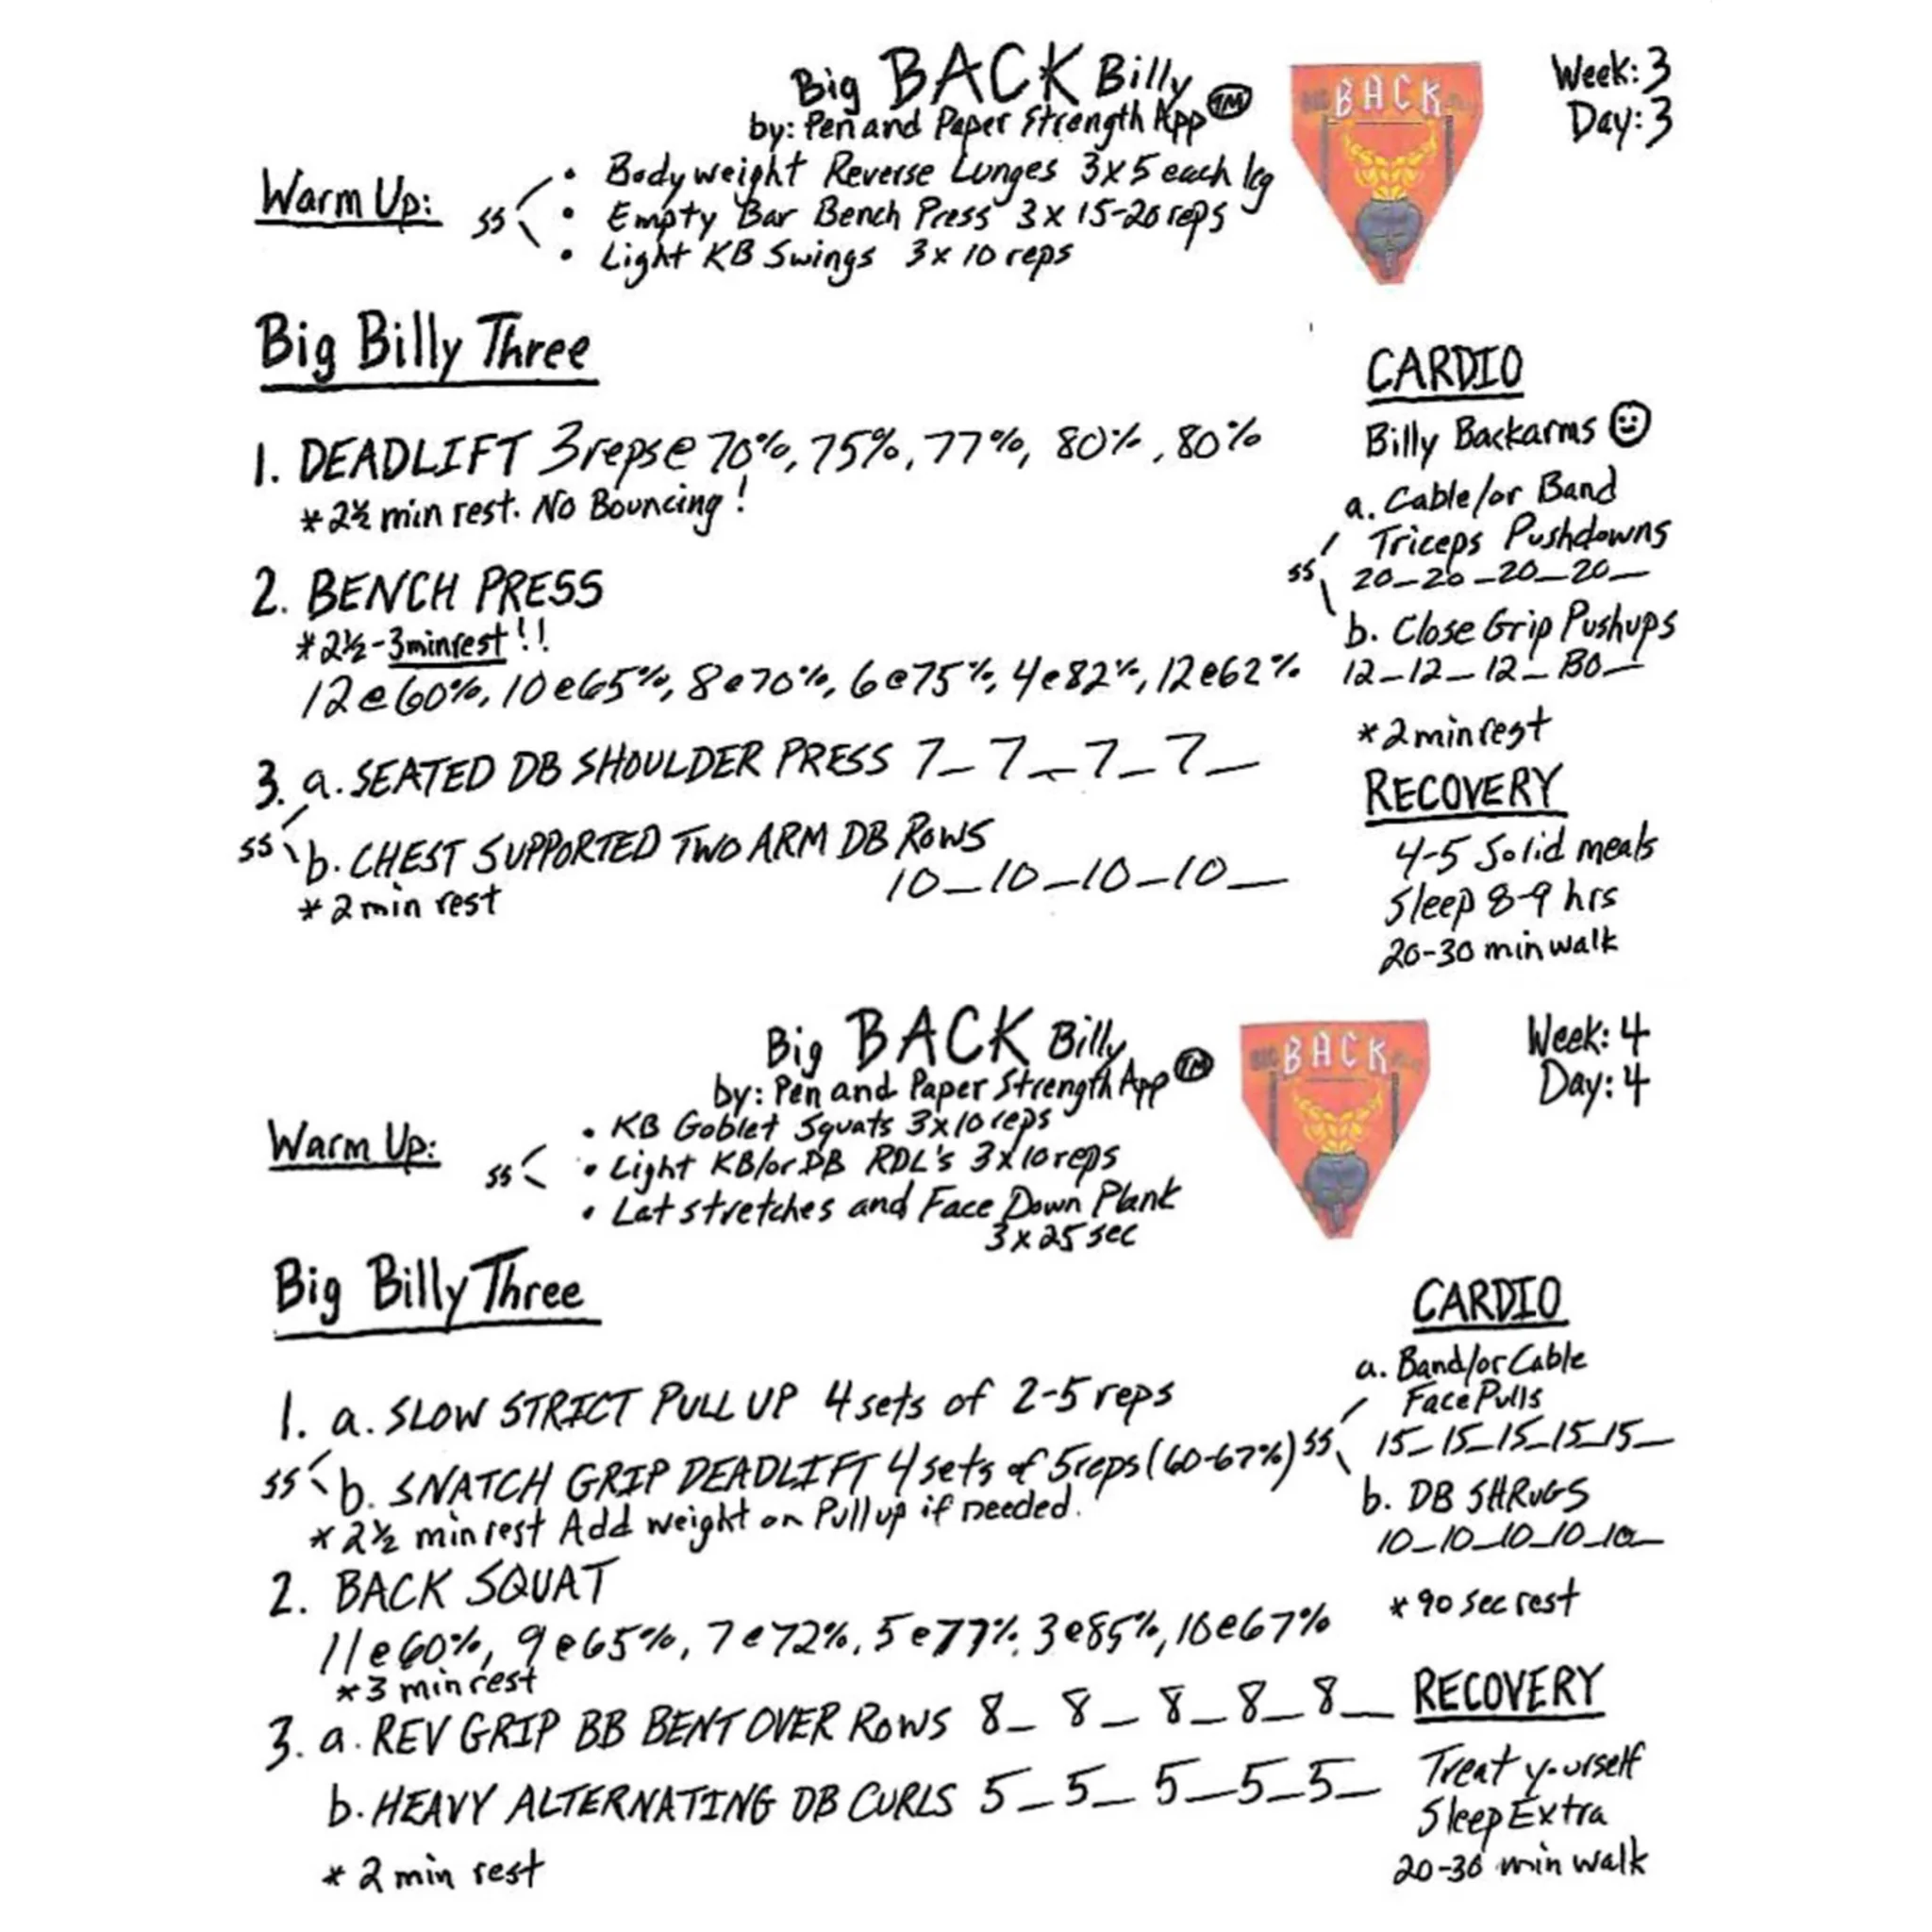 Big BACK Billy
by: Pen and Paper Strength App TM
BACK
Week: 3
Day: 3
Warm Up:
ss
• Bodyweight Reverse Lunges 3x5 each leg
• Empty Bar Bench Press 3x15-20 reps
• Light KB Swings 3x10 reps
Big Billy Three
1. DEADLIFT 3reps@70%, 75%, 77%, 80%, 80%
*2½ min rest. No Bouncing!
2. BENCH PRESS
*2½-3min rest!!
12@60%, 10@65%, 8@70%, 6@75%, 4@82%, 12@62%
3. a. SEATED DB SHOULDER PRESS 7_ 7_ 7_ 7_
ss b. CHEST SUPPORTED TWO ARM DB ROWS
10_10_10_10_
*2 min rest
CARDIO
Billy Backarms
a. Cable/or Band
Triceps Pushdowns
ss 20_20_20_20_
b. Close Grip Pushups
12_12_12_BO_
*2 min rest
RECOVERY
4-5 Solid meals
Sleep 8-9 hrs
20-30 min walk
Big BACK Billy
by: Pen and Paper Strength App TM
BIG BACK
Week: 4
Day: 4
Warm Up:
ss
• KB Goblet Squats 3x10 reps
• Light KB/or DB RDL's 3x10 reps
• Lat stretches and Face Down Plank
3x25 sec
Big Billy Three
1. a. SLOW STRICT PULL UP 4 sets of 2-5 reps
ss b. SNATCH GRIP DEADLIFT 4 sets of 5 reps (60-67%)
*2½ min rest Add weight on Pull up if needed.
2. BACK SQUAT
11@60%, 9@65%, 7@72%, 5@77%, 3@85%, 10@67%
*3 min rest
3. a. REV GRIP BB BENT OVER ROWS 8_ 8_ 8_ 8_ 8_
b. HEAVY ALTERNATING DB CURLS 5_ 5_ 5_ 5_ 5_
*2 min rest
CARDIO
a. Band/or Cable
Face Pulls
ss 15_15_15_15_15_
b. DB SHRUGS
10_10_10_10_10_
*90 sec rest
RECOVERY
Treat yourself
Sleep Extra
20-30 min walk